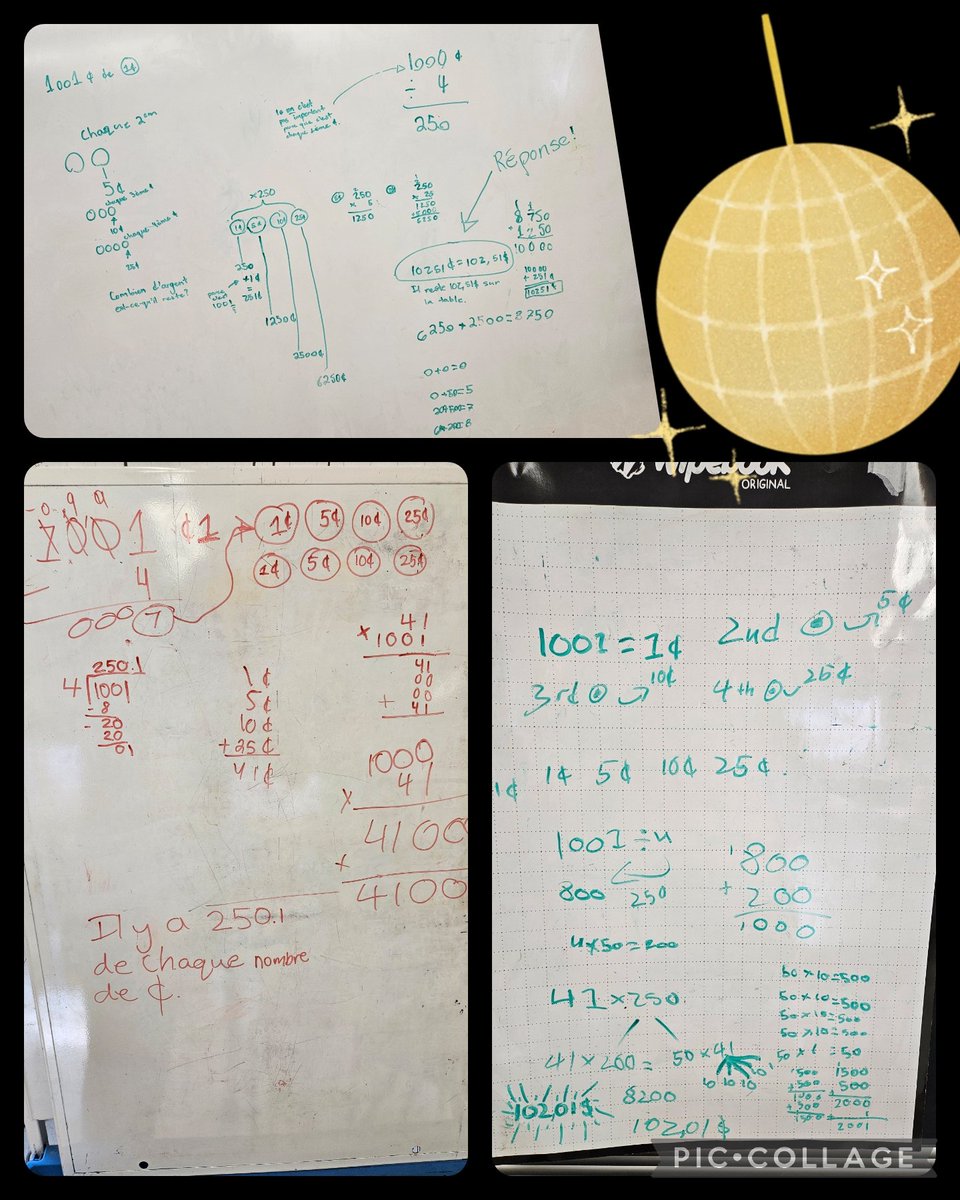 1001¢ de 1¢
Chaque 2em
5¢
chaque 3ème ¢
10¢
chaque 4ème ¢
25¢
Combien d'argent
est-ce qu'il reste?
1000¢
÷ 4
250
pas important
parce que c'est
Réponse!
x250
1¢ 5¢ 10¢ 25¢
250
+1¢
=
251¢
parce
c'est
1001
1250¢
2500¢
6250¢
250
x 5
1250
250
x 25
1250
+5000
6250
10251¢=102,51$
Il reste 102,51$ sur
la table.
8750
+1250
10000
10000
+ 251¢
10251¢
6250+2500=8750
0+0=0
1001 ¢1
4
000 7
1¢ 5¢ 10¢ 25¢
1¢ 5¢ 10¢ 25¢
250.1
4 1001
-8
20
20
01
1¢
5¢
10¢
+25¢
41¢
41
x 1001
41
00
00
+ 41
1000
41
x
4100
x
4100
Il y a 250.1
de chaque nombre
de ¢.
wipebook
ORIGINAL
1001=1¢ 2nd 5¢
3rd 10¢ 4th 25¢
1¢ 1¢ 5¢ 10¢ 25¢
1001÷4
800 250
4x50=200
800
+ 200
1000
41x250
41x200= 50x41
10 10 10 10 1
8200
102,01$
102,01$
50x10=500
50x10=500
50x10=500
50x10=500
50x1=50
500
+500
1000
+500
1500
1500
500
2000
1
2001
PIC•COLLAGE